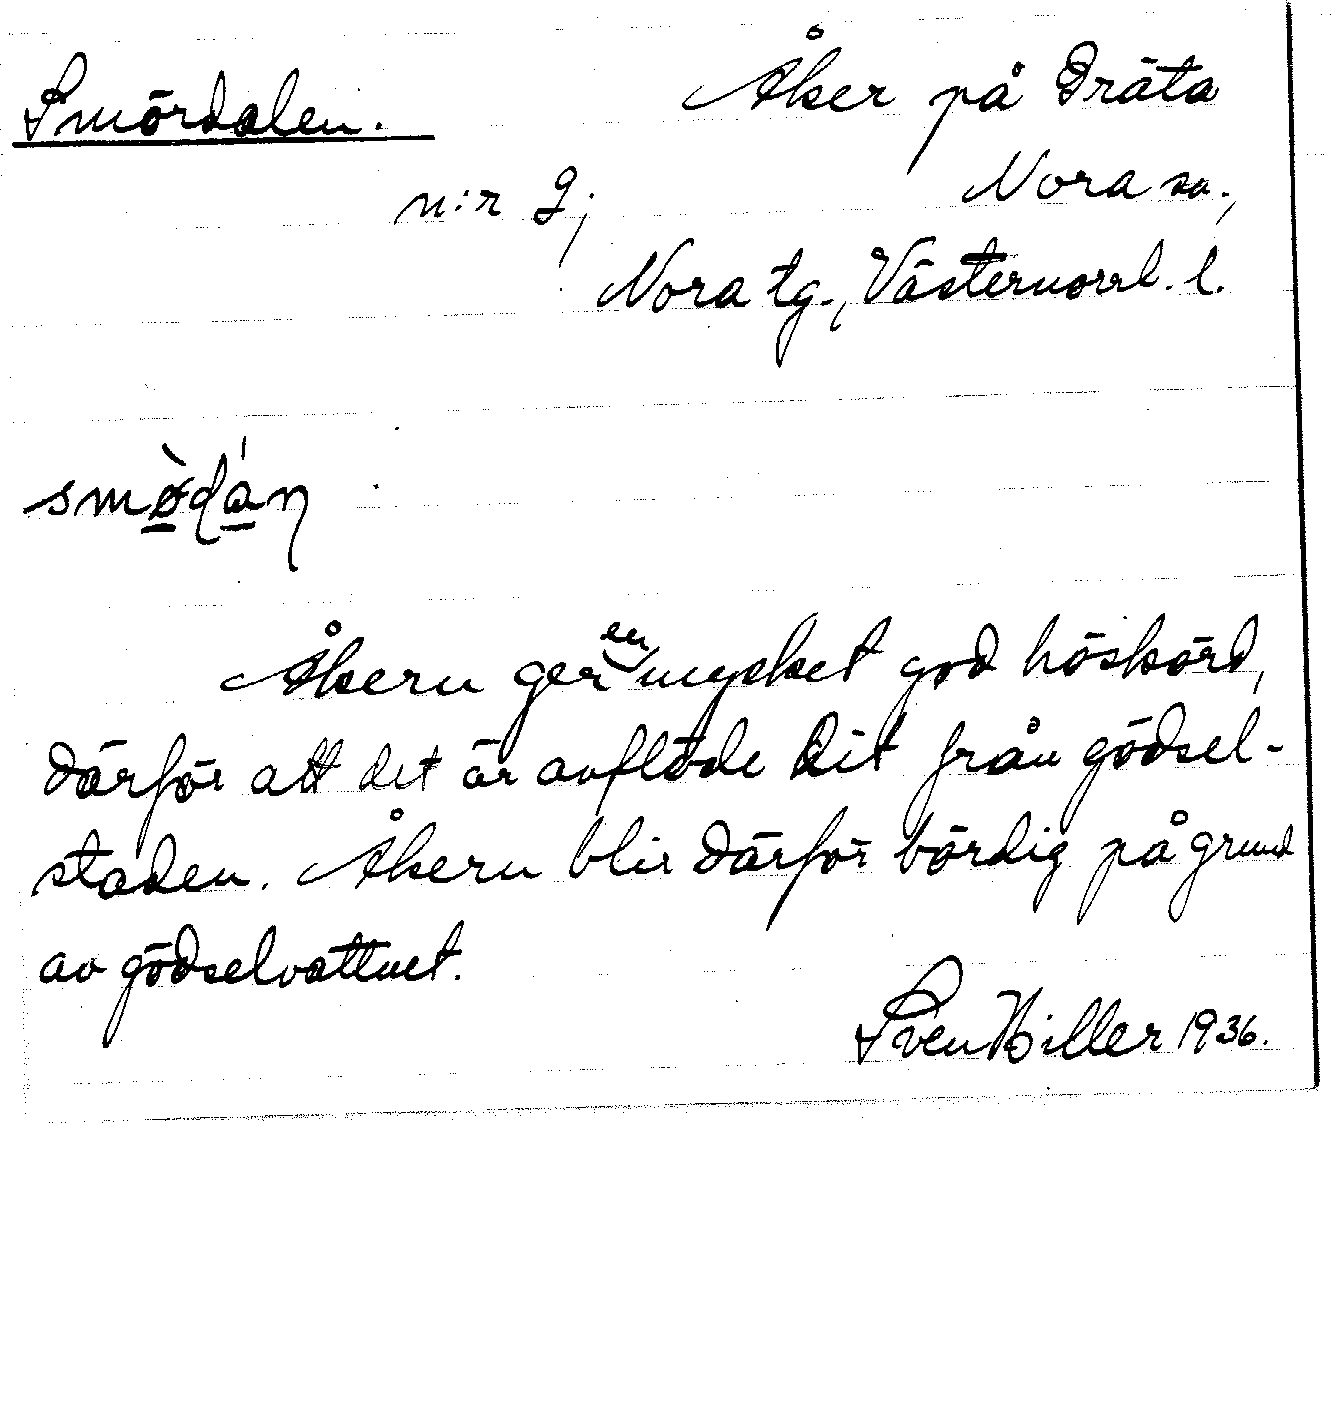 Smördalen.
Åker på Dräta
n:r 9; Nora sn.,
Nora tg., Västernorrl. l.
Åkern ger en mycket god höskörd,
därför att det är avflöde dit från gödsel-
staden. Åkern blir därför bördig på grund
av gödselvattnet.
Sven Hiller 1936.